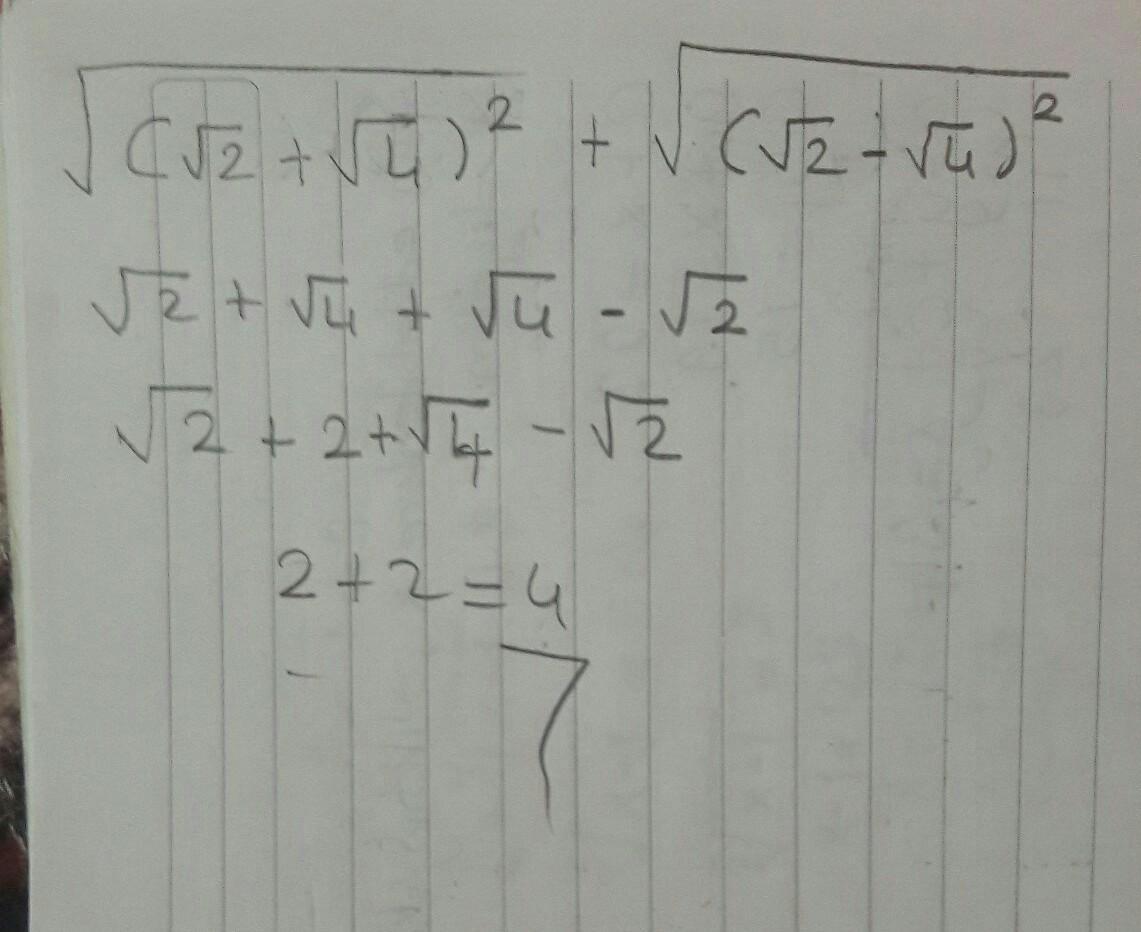 √(√2 + √4)² + √(√2 - √4)²
√2 + √4 + √4 - √2
√2 + 2 + √4 - √2
2 + 2 = 4